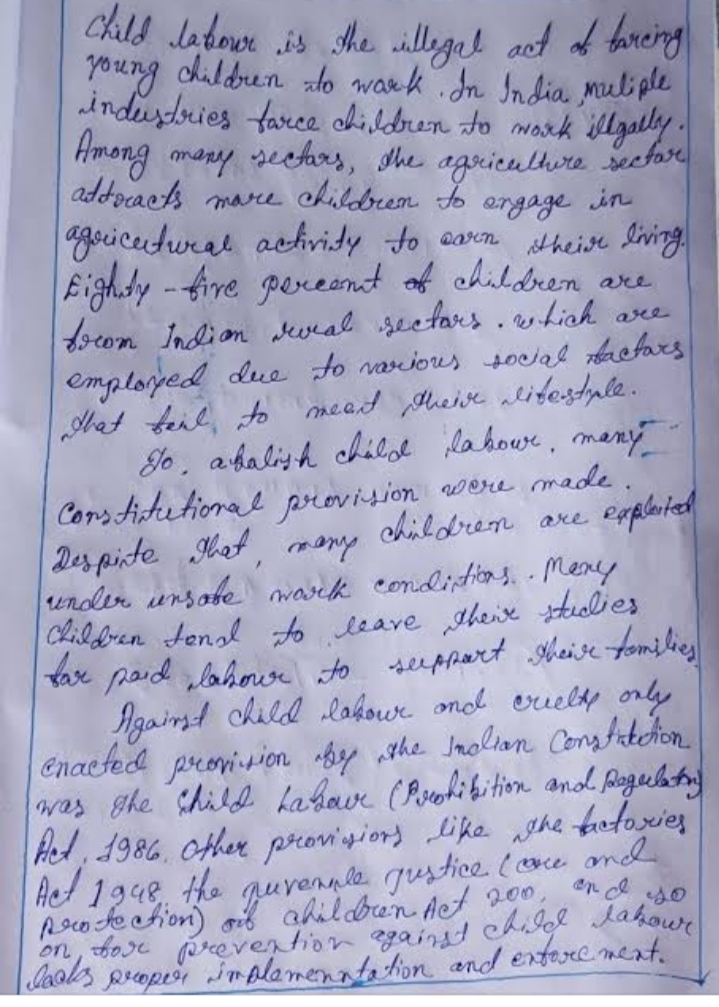 Child labour is the illegal act of forcing
young children to work. In India, muliple
industries force children to work illgally.
Among many sectors, the agriculture sector
attracts more children to engage in
agricultural activity to earn their living.
Eighty-five percent of children are
from Indian rural sectors. which are
employed due to various social factors
that fail to meet their lifestyle.
To, abalish child labour, many
Constitutional provision were made.
Despite that, many children are exploited
under unsafe work conditions. Many
Children tend to leave their studies
for paid labour to support their families.
Against child labour and cruelty only
enacted provision by the Indian Constitution
was the Child Labour (Prohibition and Regulation)
Act, 1986. Other provisions like the factories
Act 1948 the juvenile justice (care and
protection) of children Act 200, and so
on for prevention against child labour
lacks proper implemenntation and enforcement.